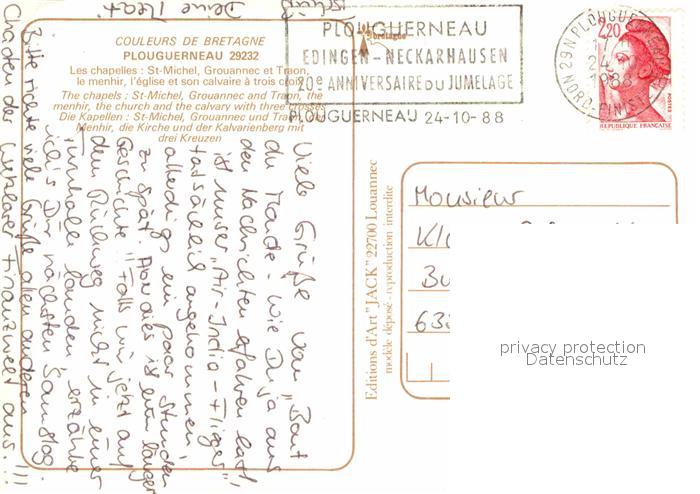 COULEURS DE BRETAGNE
PLOUGUERNEAU 29232
Les chapelles : St-Michel, Grouannec et Traon,
le menhir, l'église et son calvaire à trois croix
The chapels : St-Michel, Grouannec and Traon, the
menhir, the church and the calvary with three crosses
Die Kapellen : St-Michel, Grouannec und Traon, der
Menhir, die Kirche und der Kalvarienberg mit
drei Kreuzen
bretagne
PLOUGUERNEAU
EDINGEN-NECKARHAUSEN
20e ANNIVERSAIRE DU JUMELAGE
PLOUGUERNEAU 24-10-88
29N PLOUGUERNEAU
24
1988
NORD-FINIST
2,20
POSTES
REPUBLIQUE FRANÇAISE
Viele Grüße vom "Bout
du Monde" - wie Du ja aus
den Nachrichten erfahren hast,
ist unser "Air-India-Flieger"
tatsächlich angekommen,
allerdings ein paar Stunden
zu spät. Aber dies ist eine längere
Geschichte. Falls wir jetzt auf
dem Rückweg nicht in einer
Turnhalle landen, erzähle
ich's Dir nächsten Samstag.
Bitte richte viele Grüße allen anderen
Chaoten der Wetzlarer Finanzwelt aus.!!!
Tschüß
Deine Beat
Editions d'Art "JACK" 22700 Louannec
modèle déposé - reproduction interdite
Monsieur
privacy protection
Datenschutz